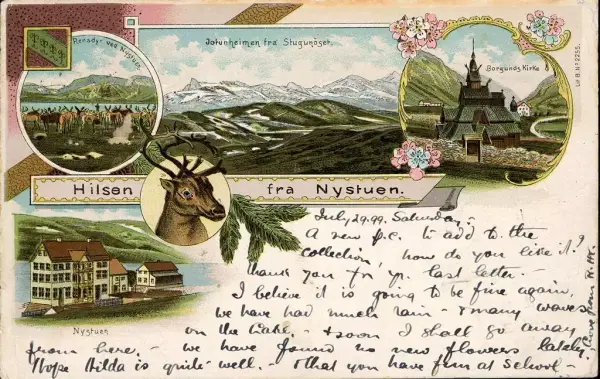 Rensdyr ved Nystuen.
Jotunheimen fra Stugunöset.
Borgunds Kirke
Hilsen fra Nystuen.
Nystuen
July 29. 99. Saturday. -
A new p.c. to add to the
collection, how do you like it?
Thank you for yr. last letter. -
I believe it is going to be fine again,
we have had much rain - & many waves
on the lake. - & soon I shall go away
from here. - we have found no new flowers lately. -
Hope Hilda is quite well. - & that you have fun at School -
Love from